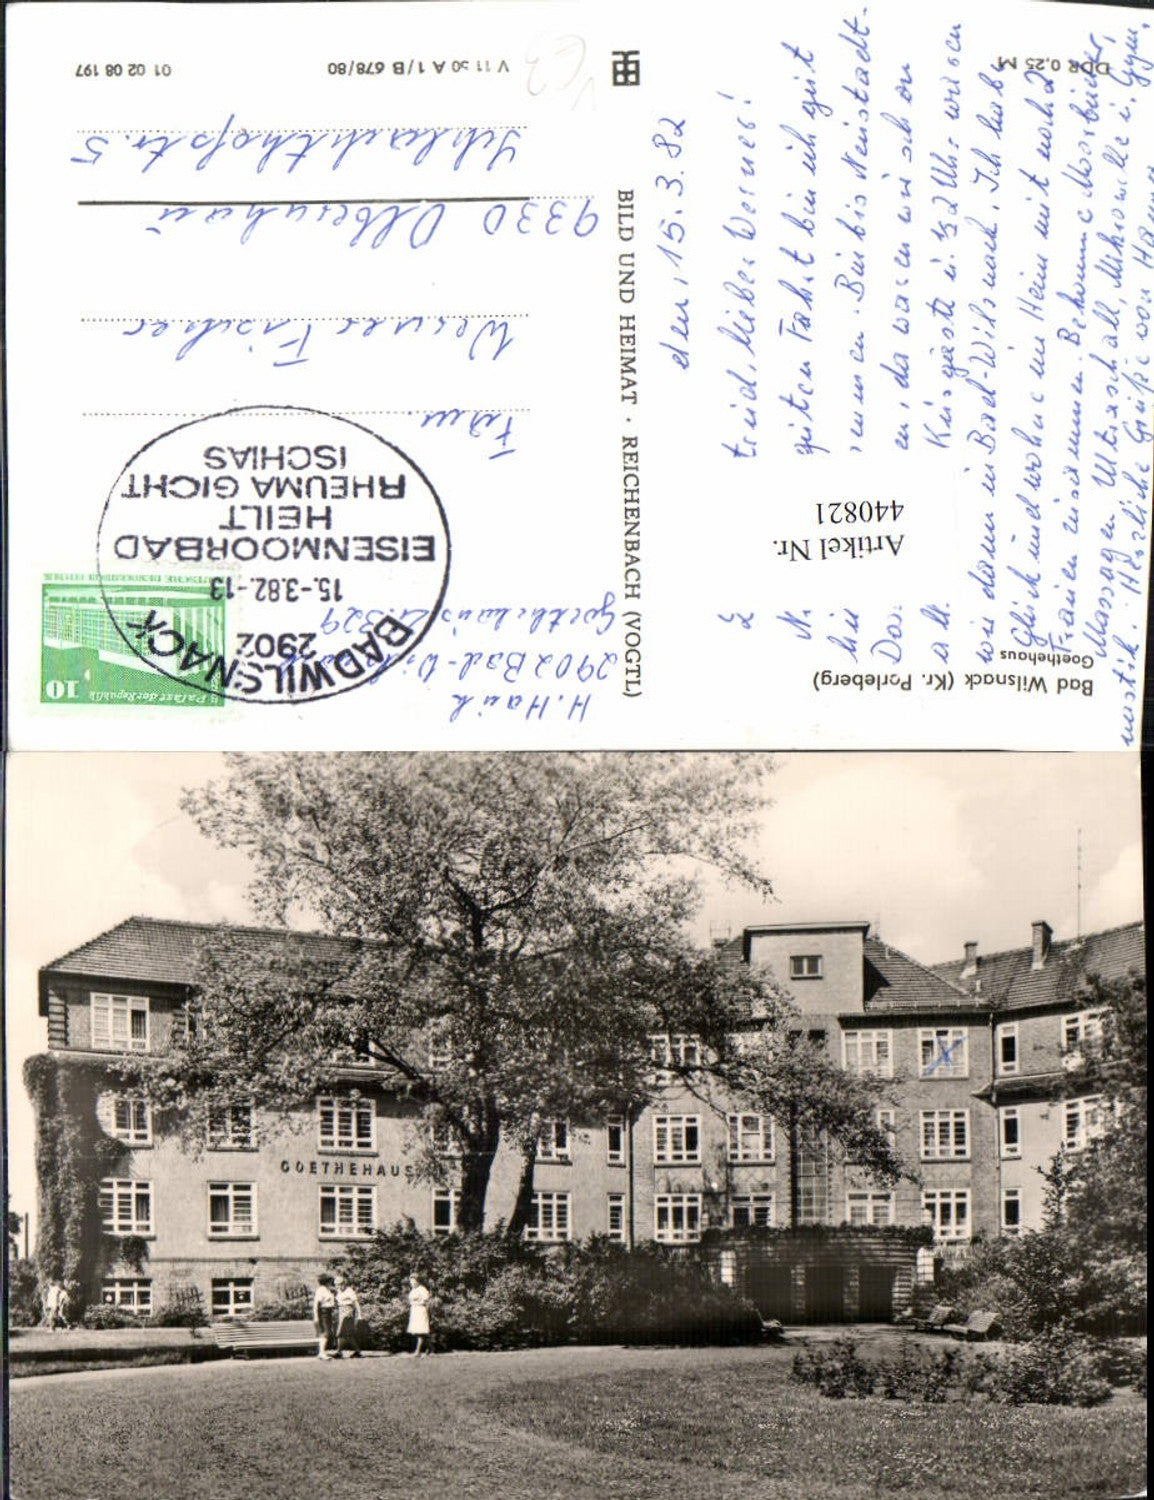 Bad Wilsnack (Kr. Perleberg)
Goethehaus
DDR 0,25 M
den, 15. 3. 82
Lieber Werner!
guten Fahrt bin ich gut
Bin bis Neustadt-
da waren wir schon
Kurgäste u. ½2 Uhr waren
wir dann in Bad-Wilsnack. Ich habe
Glück und wohne im Heim mit noch 2
Frauen zusammen. Bekomme Moorbäder,
Massagen, Ultraschall, Mikrowelle u. Gym-
nastik. Herzliche Grüße von
Artikel Nr.
440821
BILD UND HEIMAT · REICHENBACH (VOGTL)
H. Hauk
2902 Bad-Wilsnack
Goethehaus Zi. 329
Palast der Republik
10
DEUTSCHE DEMOKRATISCHE REPUBLIK
BAD WILSNACK
2902
15.-3.82.-13
EISENMOORBAD
HEILT
RHEUMA GICHT
ISCHIAS
Fam.
Werner Fischer
9330 Olbernhau
Schlachthofstr. 5
V 11 50 A 1/B 678/80
01 02 08 197
GOETHEHAUS
X